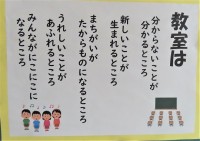 教室は
分からないことが
分かるところ
新しいことが
生まれるところ
まちがいが
たからものになるところ
うれしいことが
あふれるところ
みんながにこにこに
なるところ